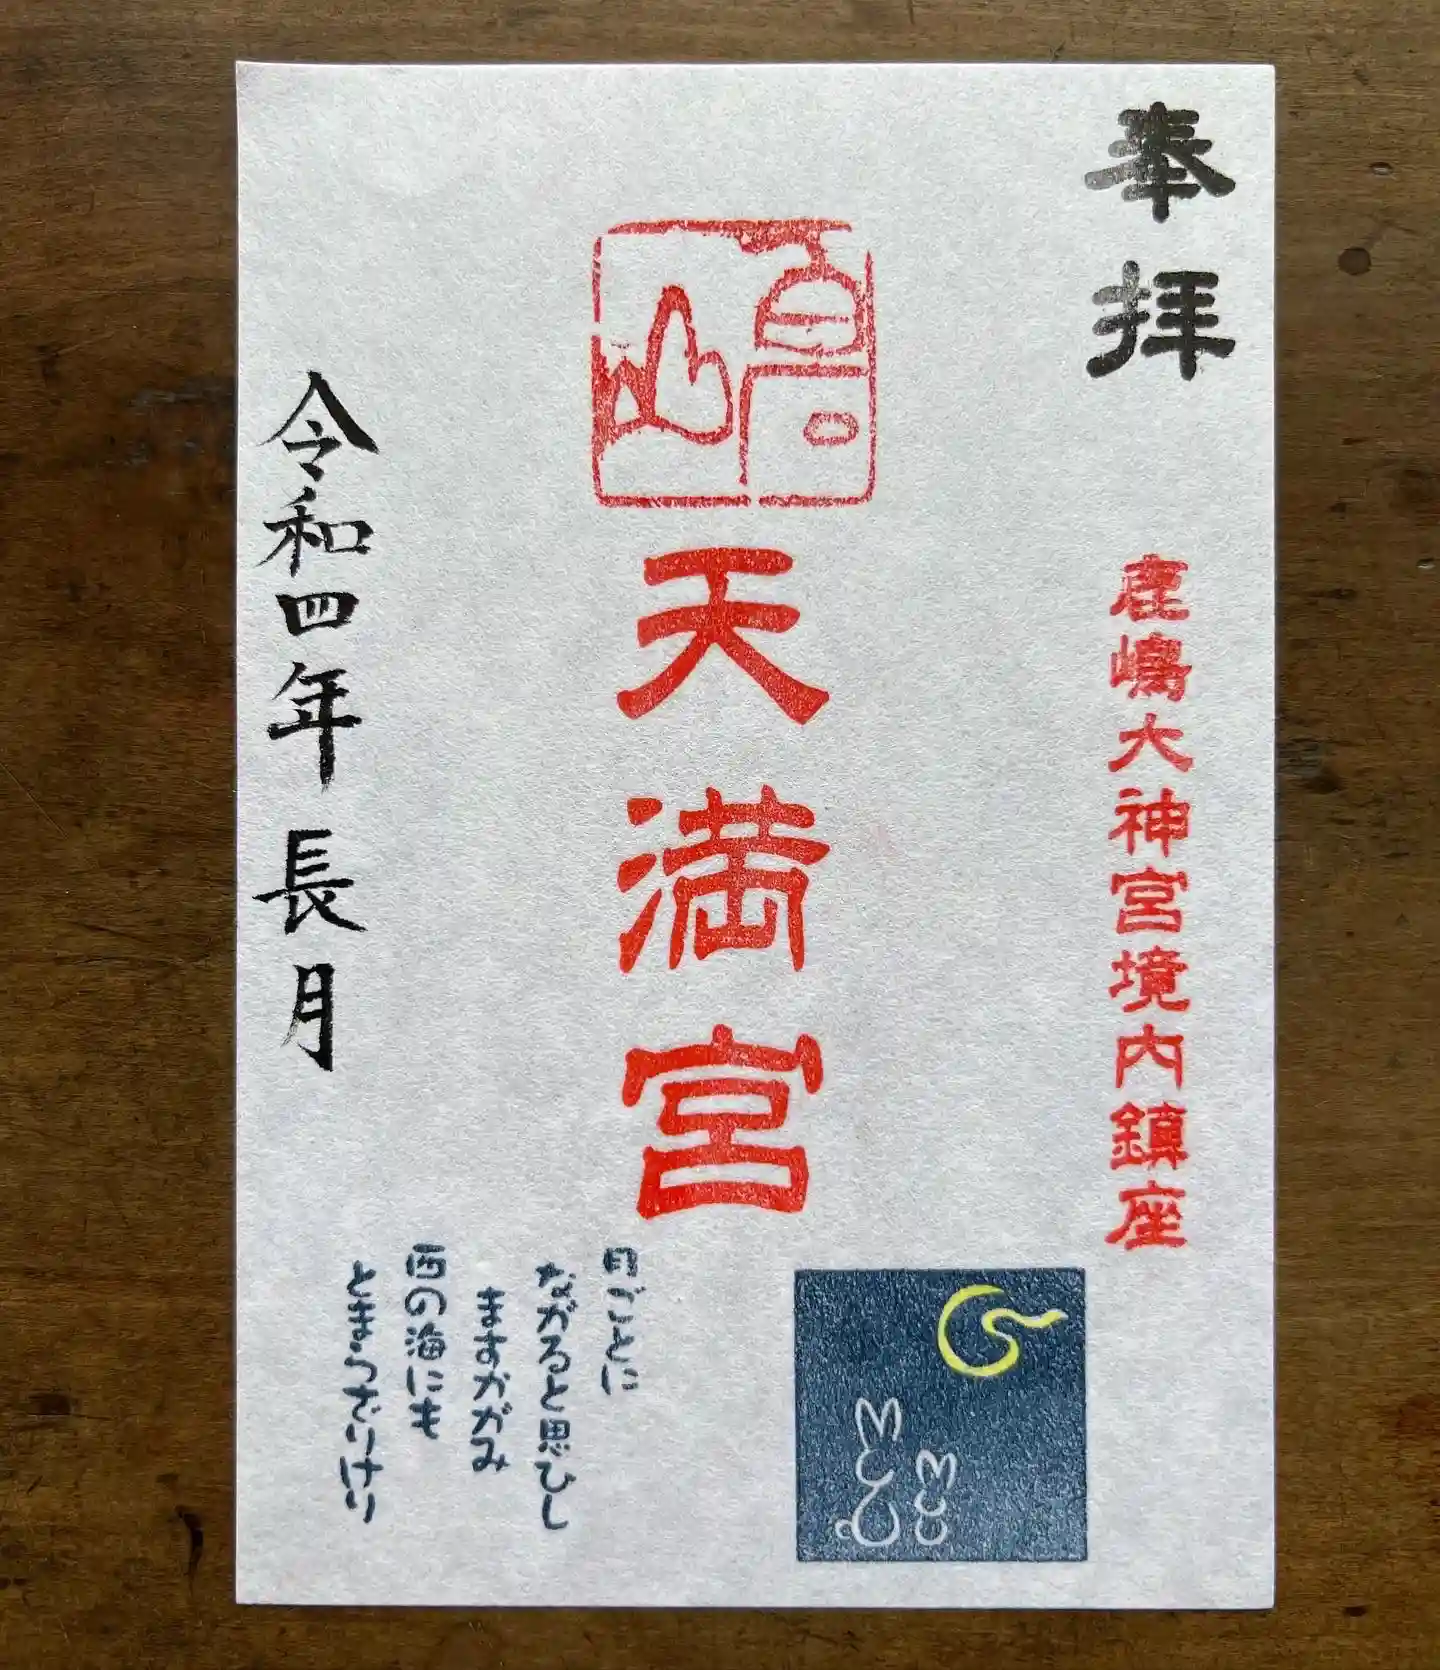 奉拝
鹿嶋大神宮境内鎮座
天満宮
令和四年 長月
月ごとに
ながると思ひし
ますかがみ
西の海にも
とまらざりけり